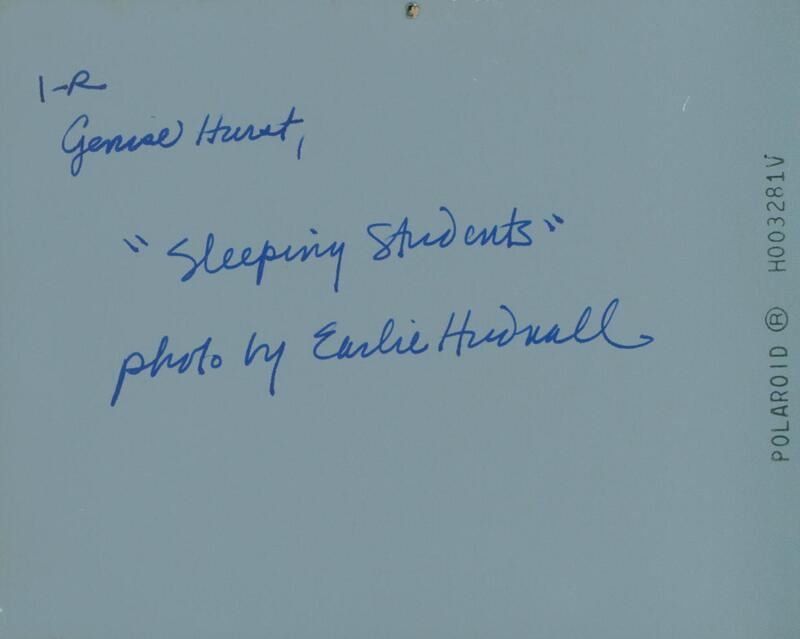 1-R
Genise Hurst,
"Sleeping Students"
photo by Earlie Hudnall
POLAROID ® H003281V